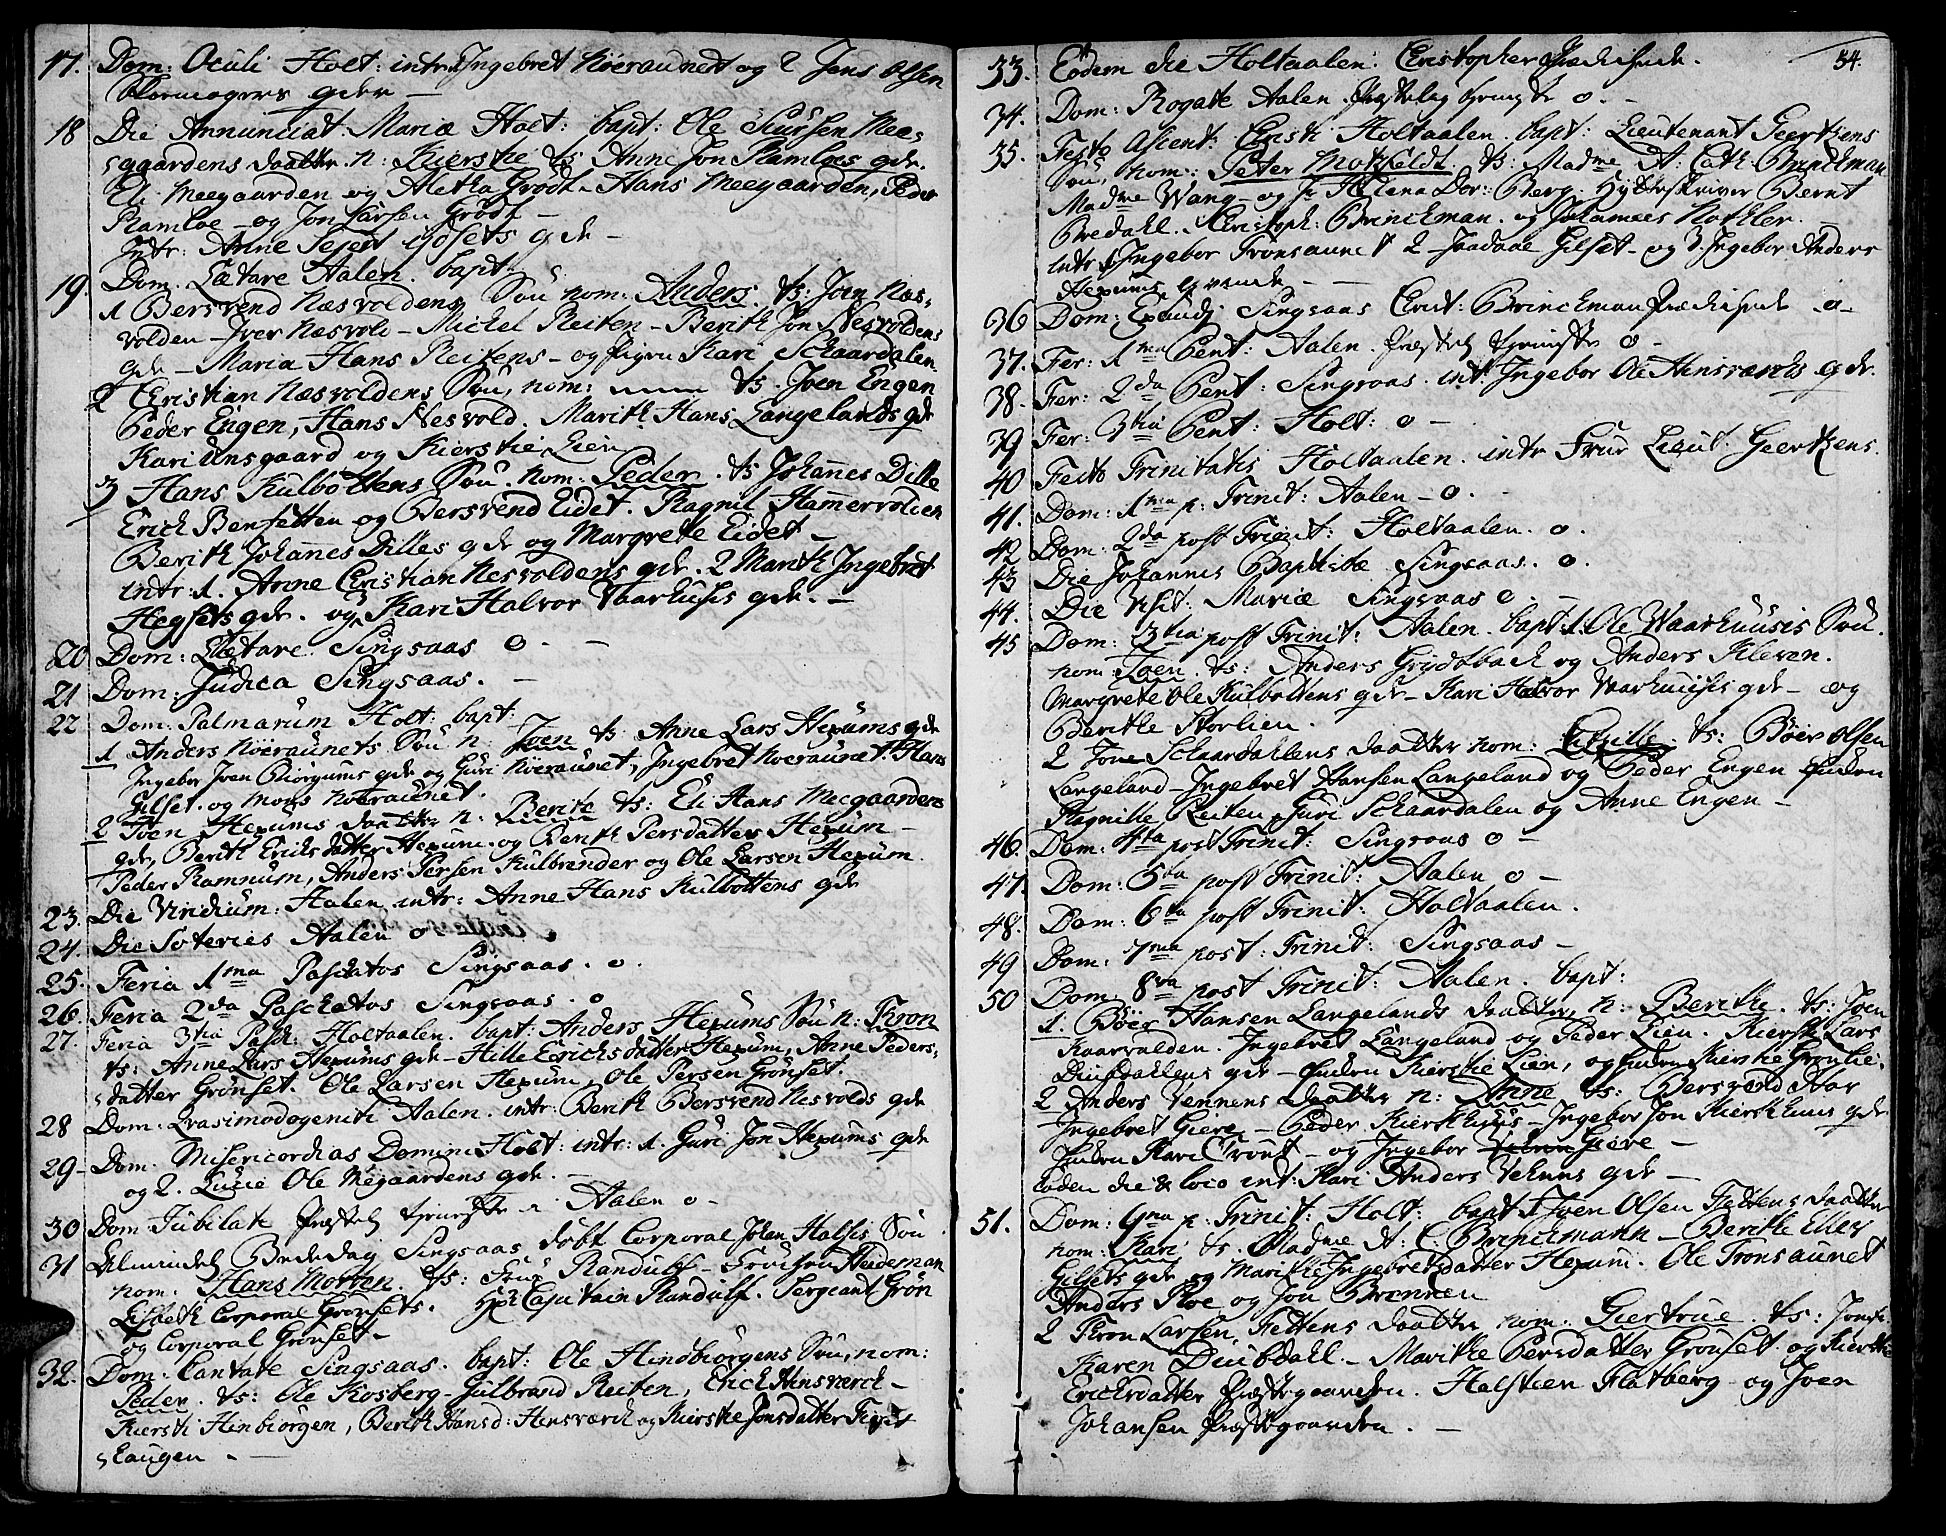 17. Dom: Oculi Holt: intr: 1 Ingebret Nöeraunedt og 2 Jens Olsen
Skoemagers qde —
18 Die Annunciat. Mariæ Holt: bapt: Ole Siursen Mee-
gaardens daatter. n: Kierstie ts: Anne Jon Ramloes qde.
Eli Meegaarden og Aletha Grödt. Hans Meegaarden, Peder
Ramloe — og Jon Larsen Grödt —
Intr: Anne Pejert Eidsets qde —
19. Dom. Lætare Aalen. bapt:
1 Bersvend Næsvoldens Sön nom: Anders. ts: Joen Næs-
volden — Iver Næsvold — Michel Reiten — Berith Jon Nesvoldens
qde — Maria Hans Reitens — og Pigen Kari Schaardalen
2 Christian Næsvoldens Sön, nom: ts. Joen Engen
Peder Engen, Hans Nesvold. Marith Hans Langelands qde
Kari Unsgaard og Kierstie Lien
3 Hans Kulbottens Sön. nom: Peder. ts Johannes Dille
Erich Bensetten og Bersvend Eidet. Ragnil Hammervolden
Berith Johannes Dilles qde og Margrete Eidet —
intr: 1. Anne Christian Nesvoldens qde. 2 Marith Ingebret
Hegsets qde. og Kari Halvor Vaarhuses qde. —
20 Dom: Lætare Singsaas o — —
21 Dom: Judica Singsaas. —
22 Dom: Palmarum Holt: bapt:
1 Anders Nöeraunets Sön n: Joen ts: Anne Lars Hexums qde
Ingebor Joen Biörgums qde og Guri Nöeraunet, Ingebret Nöeraunet. Hans
Gilset. og Mons Nöeraunet.
2 Joen Hexums daatter n: Berite ts: Eli Hans Meegaardens
qde, Berith Erichsdatter Hexum. og Berith Persdatter Hexum —
Peder Ramnum, Anders Persen Kulbrander og Ole Larsen Hexum.
23. Die Viridium: Halen intr: Anne Hans Kulbottens qde
24. Die Soteries Aalen o
25. Feria 1ma Paschatos Singsaas. o.
26. Feria 2da Paschatos Singsaas. o
27. Feria 3tia Pasch: Holtaalen. bapt: Anders Hexums Sön n: Thron
ts: Anne Lars Hexums qde — Hille Erichsdatter Hexum, Anne Peders-
datter Grönset. Ole Larsen Hexum, Ole Persen Grönset.
28 Dom: Qvasimodogeniti Aalen. intr: Berith Bersvend Nesvolds qde
29 — Dom. Misericordias Domini Holt: intr: 1. Guri Jon Hexums qde
og 2. Lucie Ole Megaardens qde. —
30 Dom Jubilate Aalen o —
31 Almindel Bededag Singsaas döbt Corporal Johan Halses Sön
nom. Hans Morten. ts: Frue Randulf — Heideman
Lisbeth Corporal Grönsets. Hr Capitain Randulf. Sergeant Grön
og Corporal Grönset —
32. Dom: Cantate Singsaas. bapt: Ole Hindbiörgens Sön, nom:
Peder. ts: Ole Kosberg — Gulbrand Reiten, Erich Hinsværck —
Kiersti Hinbiörgen, Berith Hansd: Hensværck og Kierstie Jonsdatter
haugen —
54.
33. Eodem die Holtaalen: Christopher Prædikende.
34. Dom: Rogate Aalen. o. —
35. Festo Ascent: Christi Holtaalen. bapt: Lieutenant Geertzens
Sön, nom: Peter Motzfeldt. ts: Madme A: Cath: Brinckman
Madme Wang — og Jr Helena Dor: Berg. Hytteskriver Bernt
Bredahl. Christoph: Brinckman. og Johannes Kokler. —
intr 1 Ingebor Tronsaunet 2 Gilset — og 3. Ingebor Anders
Hexums qvende —
36 Dom: Exaudi Singsaas Christ: Brinckman Prædikende o —
37. Fer: 1ma Pent: Aalen. o —
38. Fer: 2da Pent: Singsaas. int: Ingebor Ole Hinsværks qde.
39 Fer: 3tia Pent: Holt: o —
40 Festo Trinitatis Holtaalen. intr Frue Lieut: Geertzens.
41. Dom: 1ma p: Trinit: Aalen — o.
42 Dom: 2da post Trinit: Holtaalen. o.
43 Die Johannis Baptistæ Singsaas. o.
44. Die Visit: Mariæ Singsaas o —
45 Dom: 3tia post Trinit: Aalen. bapt 1. Ole Waarhuusis Sön.
nom: Joen. ts: Anders Grydtbach og Anders Kleven.
Margrete Ole Kulbottens qde — Kari Halvor Vaarhuuses qde — og
Berithe Storlien.
2 Jone Schaardahlens daatter nom: ts: Böer Olsen
Langeland — Ingebret Hansen Langeland og Peder Engen
Ragnille Reiten, Guri Schaardalen og Anne Engen —
46. Dom: 4ta post Trinit: Singsaas o —
47 Dom: 5ta post Trinit: Aalen o —
48. Dom: 6ta post Trinit: Holtaalen.
49 Dom: 7ma post: Trinit: Singsaas —
50 Dom: 8va post Trinit: Aalen. bapt:
1. Böer Hansen Langelands daatter n: Berithe. ts: Joen
Kaarvalden. Ingebret Langeland og Peder Lien. Kiersti Lars
Diusdahlens qde — Kierstie Lien, og Kierstie Grönlie.
2 Anders Vennens Daatter n: Anne ts: Bersvend Hov
Ingebret Giere — Peder Kierkhuus — Ingebor Jon Kierkhuus qde
Kari Trönt — og Ingebor Giere —
Eodem die & loco int: Kari Anders Vennens qde —
51. Dom: 9na p: Trinit: Holt: bapt 1 Joen Olsen Fettens daatter
nom: Kari ts. Madme A: C: Brinckmann — Berithe Elles
Gilsets qde og Marithe Ingebretsdatter Hexum. Ole Tronsaunet
Anders Roe og Jon Brennen
2 Thron Larsen Fettens daatter nom: Giertrue. ts:
Karen Diubdahl — Marithe Persdatter Grönset og Kierstie
Erichsdatter Præstegaarden. Halsteen Flatberg — og Joen
Johansen Præstegaarden. —